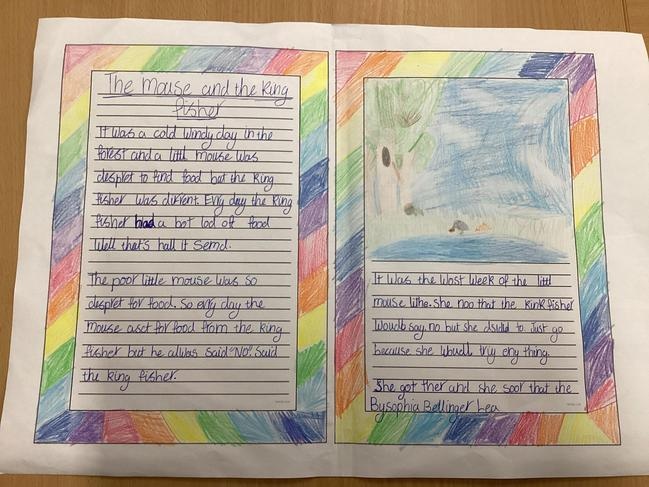 The Mouse and the King
fisher
It was a cold windy day in the
forest and a little mouse was
despret to find food but the King
fisher was difrent. Evry day the King
fisher had a bot lod off food
Well that's hall it Semd.
The poor little mouse was so
despret for food. So evry day the
mouse asct for food from the king
fisher but he alwas said "NO". Said
the king fisher.
It was the worst week of the littl
mouse lithe. She noo that the kink fisher
would say no but she dsidid to Just go
because she woudl triy eny thing.
She got ther and she soor that the
By sophia Bellinger Lea